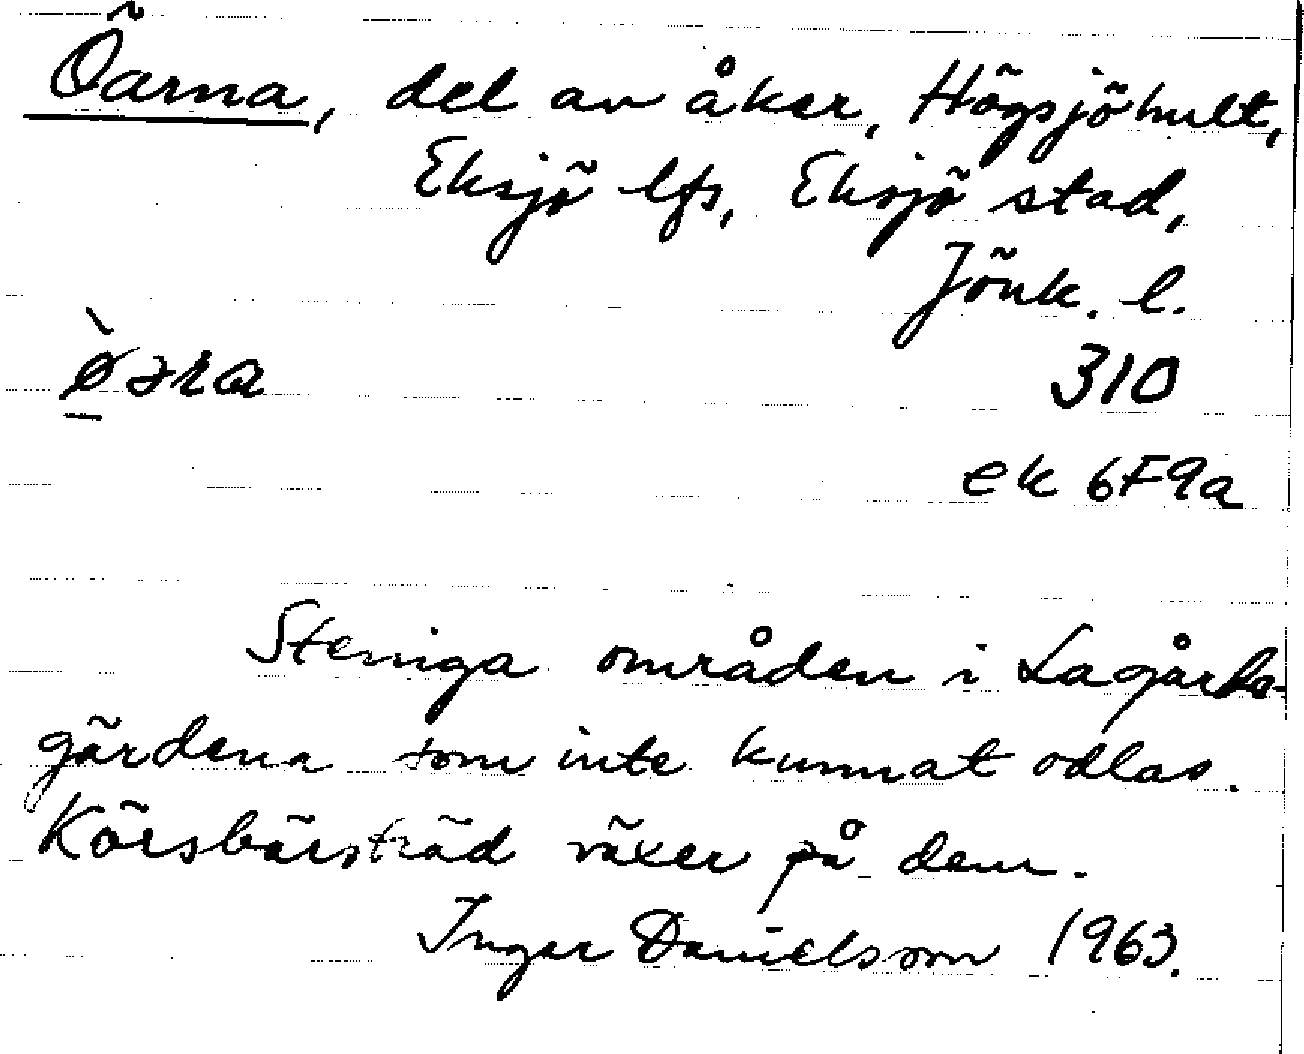 Öarna, del av åker, Högsjöhult,
Eksjö lfs, Eksjö stad,
Jönk. l.
ø̀ əɹa
310
ek 6F9a
Steniga områden i Lagårda-
gärdena som inte kunnat odlas.
Körsbärsträd växer på dem.
Inger Danielsson 1963.